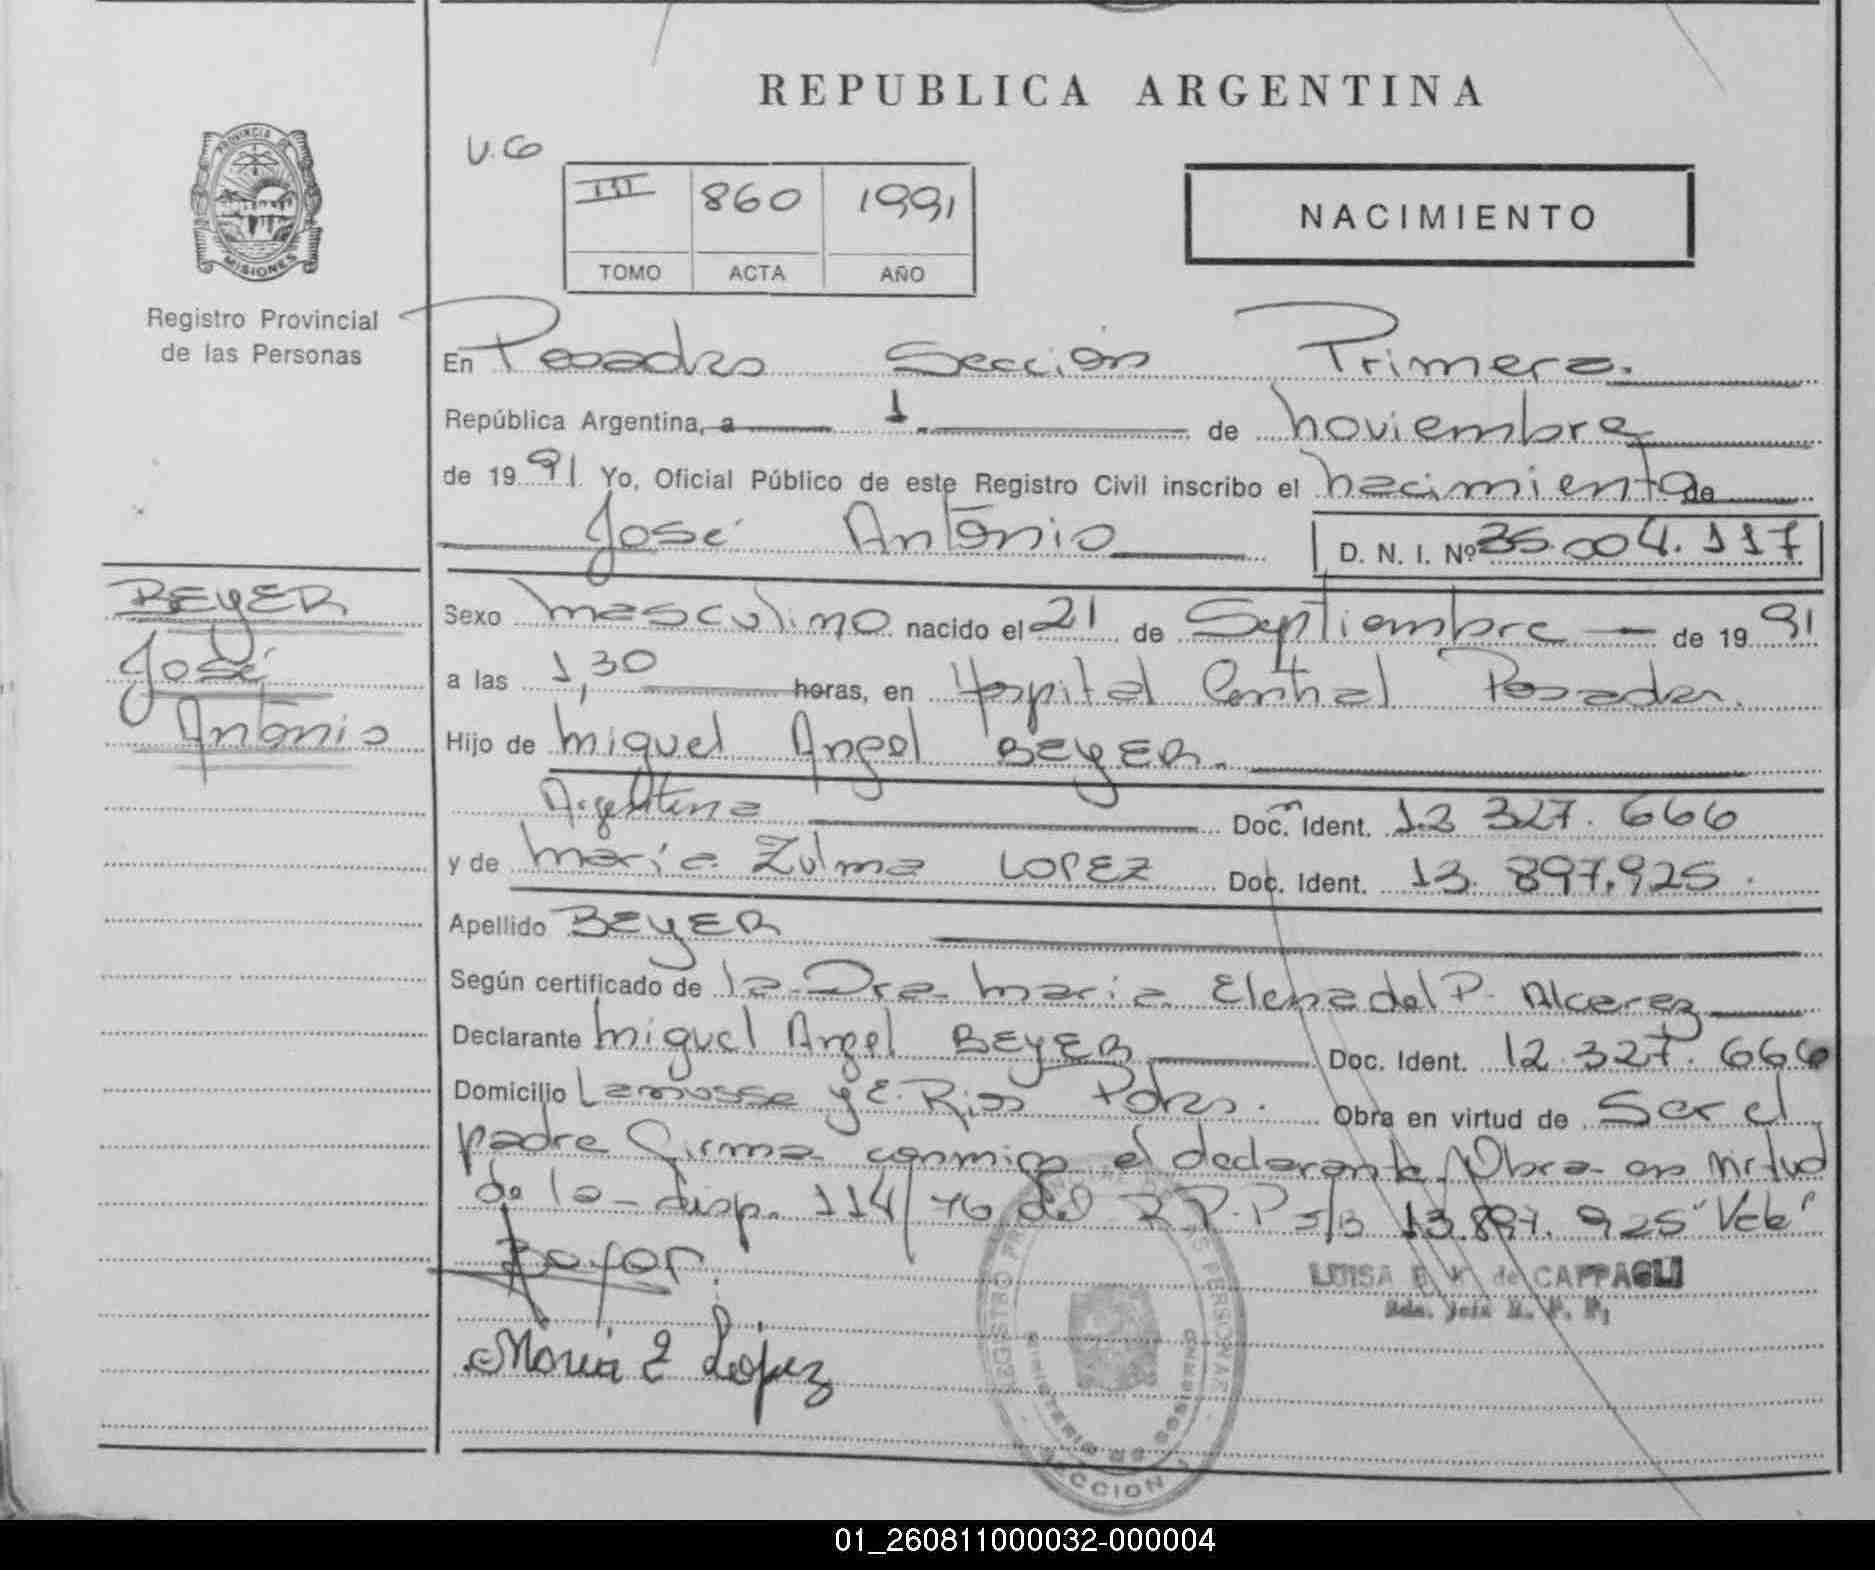 REPUBLICA ARGENTINA
PROVINCIA DE
MISIONES
Registro Provincial
de las Personas
U.Co
III 860 1991
TOMO ACTA AÑO
NACIMIENTO
En Posadas Sección Primera.
República Argentina, a 1 de noviembre
de 1991 Yo, Oficial Público de este Registro Civil inscribo el nacimiento de
José Antonio D. N. I. Nº 35.004.117
BEYER
José
Antonio
Sexo masculino nacido el 21 de Septiembre de 1991
a las 1,30 horas, en Hospital Central Posadas.
Hijo de Miguel Angel BEYER.
Argentina Doc. Ident. 12 327.666
y de María Zulma LOPEZ Doc. Ident. 13.897.925.
Apellido BEYER
Según certificado de la Dra María Elena del P. Alcaraz
Declarante Miguel Angel BEYER Doc. Ident. 12.327.666
Domicilio Lanusse y E. Rios Pdas. Obra en virtud de Ser el
padre firma conmigo el declarante. Obra en virtud
de la disp. 114/76 del R.P.P s/b 13.897.925 "Vale"
Beyer
LUISA de CAPPAGLI
María Z López
REGISTRO PROVINCIAL DE LAS PERSONAS
MINISTERIO DE GOBIERNO
SECCION 1
01_260811000032-000004